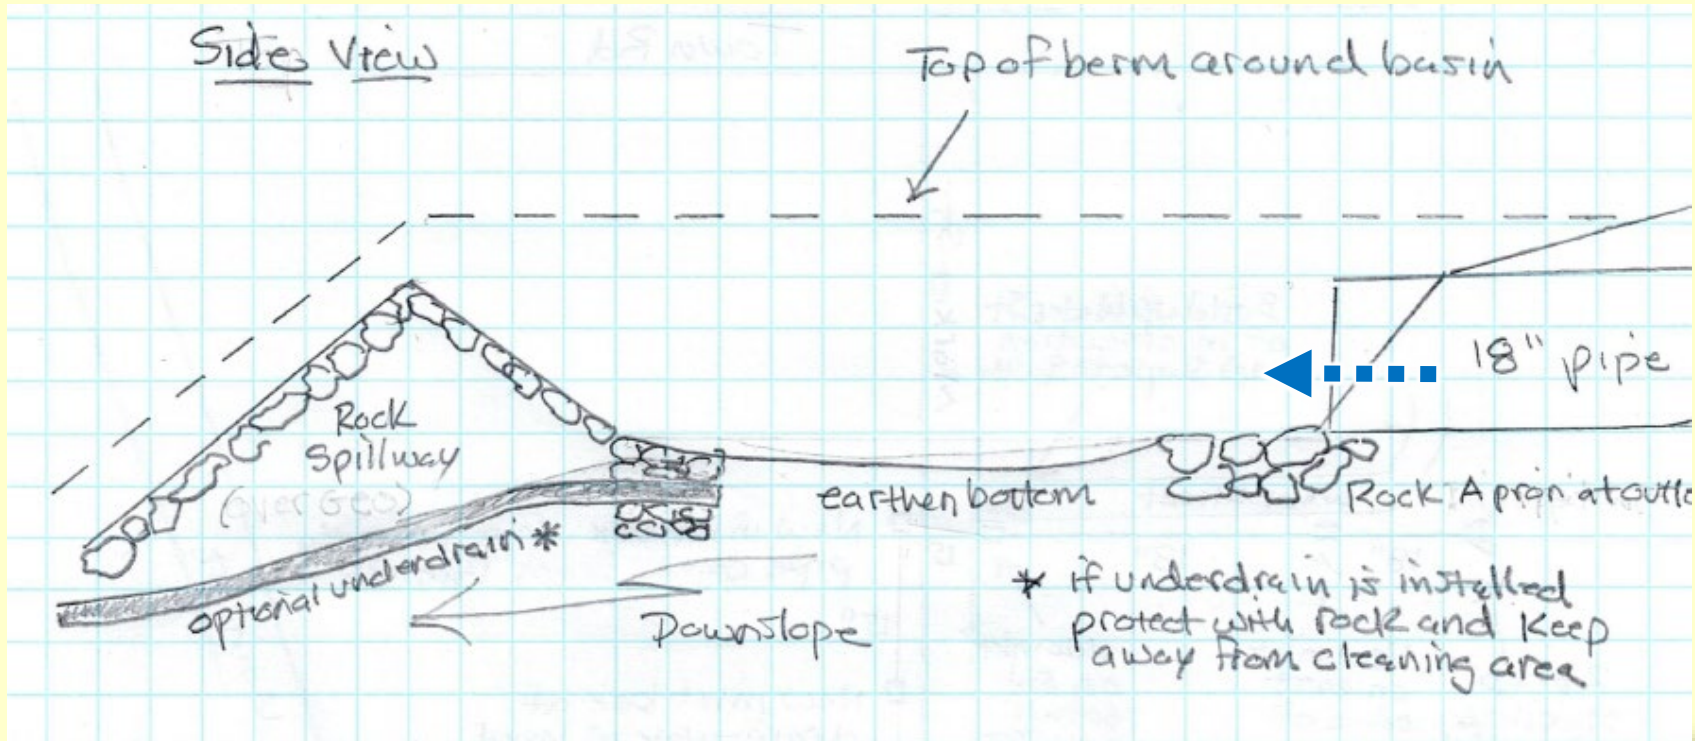 Side View
Top of berm around basin
18" pipe
Rock
Spillway
(over GEO)
earthen bottom
Rock Apron at outle
optional underdrain *
Downslope
* if underdrain is installed
protect with rock and keep
away from cleaning area